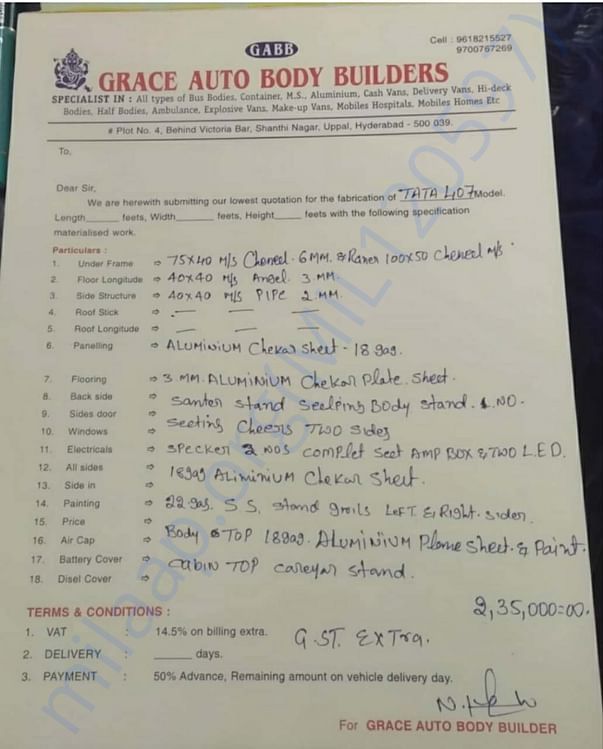 GABB
Cell : 9618215527
9700767269
GRACE AUTO BODY BUILDERS
SPECIALIST IN : All types of Bus Bodies, Container, M.S., Aluminium, Cash Vans, Delivery Vans, Hi-deck
Bodies, Half Bodies, Ambulance, Explosive Vans, Make-up Vans, Mobiles Hospitals, Mobiles Homes Etc
# Plot No. 4, Behind Victoria Bar, Shanthi Nagar, Uppal, Hyderabad - 500 039.
To,
Dear Sir,
We are herewith submitting our lowest quotation for the fabrication of TATA 407 Model.
Length______ feets, Width______ feets, Height_____ feets with the following specification
materialised work.
Particulars :
1. Under Frame ⇨ 75x40 M/s Cheneel. 6MM. & Raner 100x50 Cheneel M/s
2. Floor Longitude ⇨ 40x40 M/s Angel. 3 MM.
3. Side Structure ⇨ 40x40 M/s PIPE 2 MM.
4. Roof Stick ⇨ — — —
5. Roof Longitude ⇨ — — —
6. Panelling ⇨ ALUMINIUM Chekar sheet - 18 gag.
7. Flooring ⇨ 3 MM. ALUMINIUM Chekar Plate. Sheet.
8. Back side ⇨ Santer stand Seelping Body stand. 1. NO.
9. Sides door ⇨
10. Windows ⇨ Seeting Cheers TWO Sides
11. Electricals ⇨ Specker 2 NOS Complet Seet AMP BOX & TWO L.E.D.
12. All sides ⇨ 18gag ALIMINIUM Chekar Sheet.
13. Side in ⇨
14. Painting ⇨ 22 gag. S S. stand grails LEFT & Right. Sider.
15. Price ⇨
16. Air Cap ⇨ Body TOP 18gag. ALUMINIUM Plane Sheet. & Paint.
17. Battery Cover ⇨ CABIN TOP Careyar stand.
18. Disel Cover ⇨
2,35,000=00.
TERMS & CONDITIONS :
1. VAT : 14.5% on billing extra. G.ST. EXTra.
2. DELIVERY : ______ days.
3. PAYMENT : 50% Advance, Remaining amount on vehicle delivery day.
For GRACE AUTO BODY BUILDER